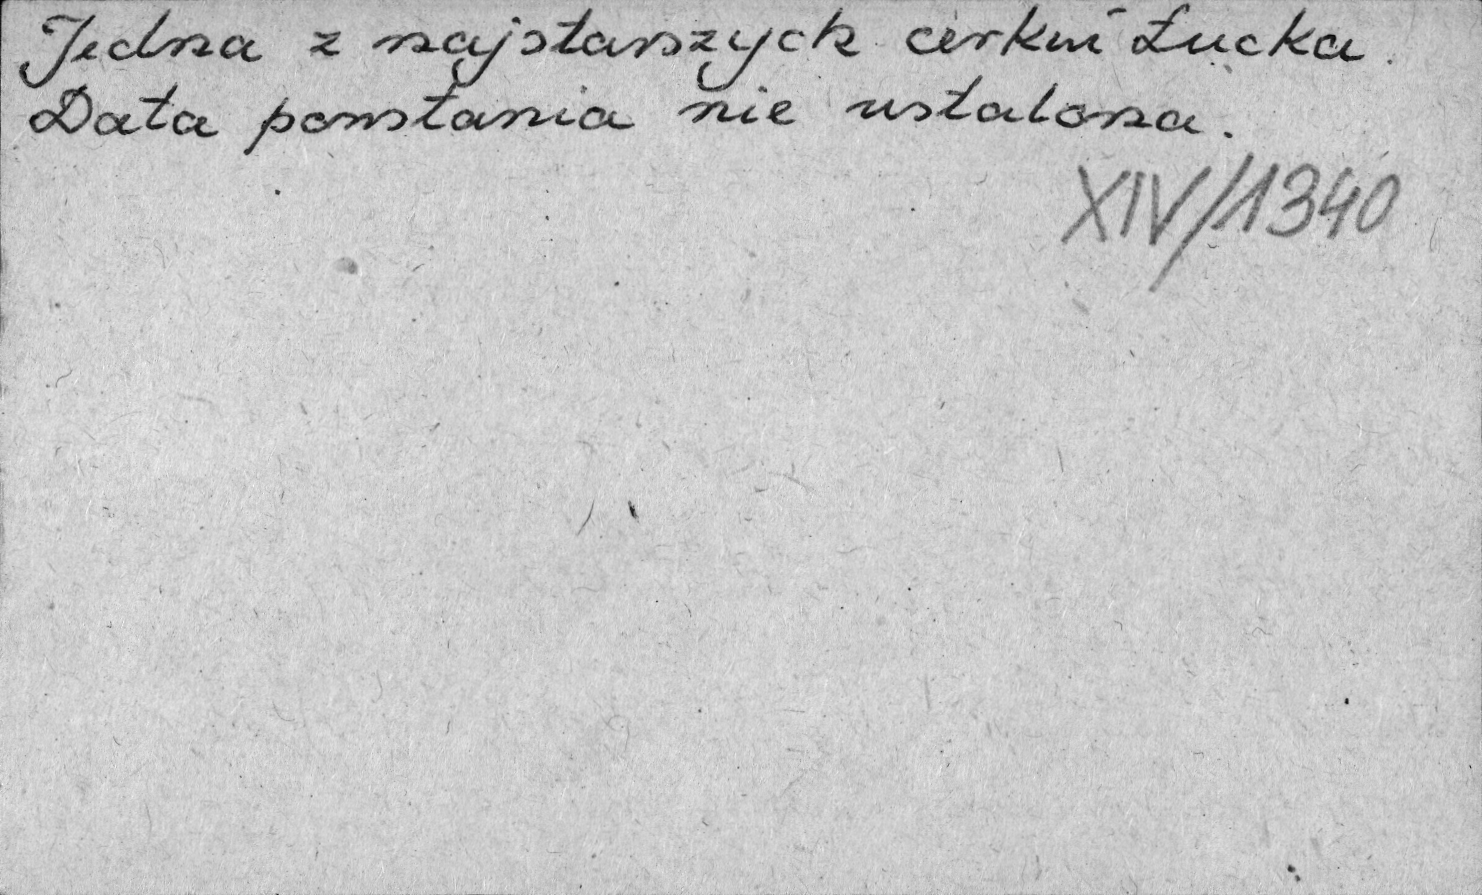 Jedna z najstarszych cerkwi Łucka.
Data powstania nie ustalona.
XIV/1340